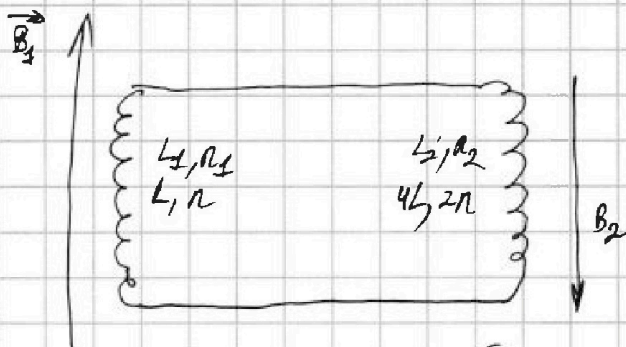 B₁
L₁, n₁
L, n
L₂, n₂
4L, 2n
B₂